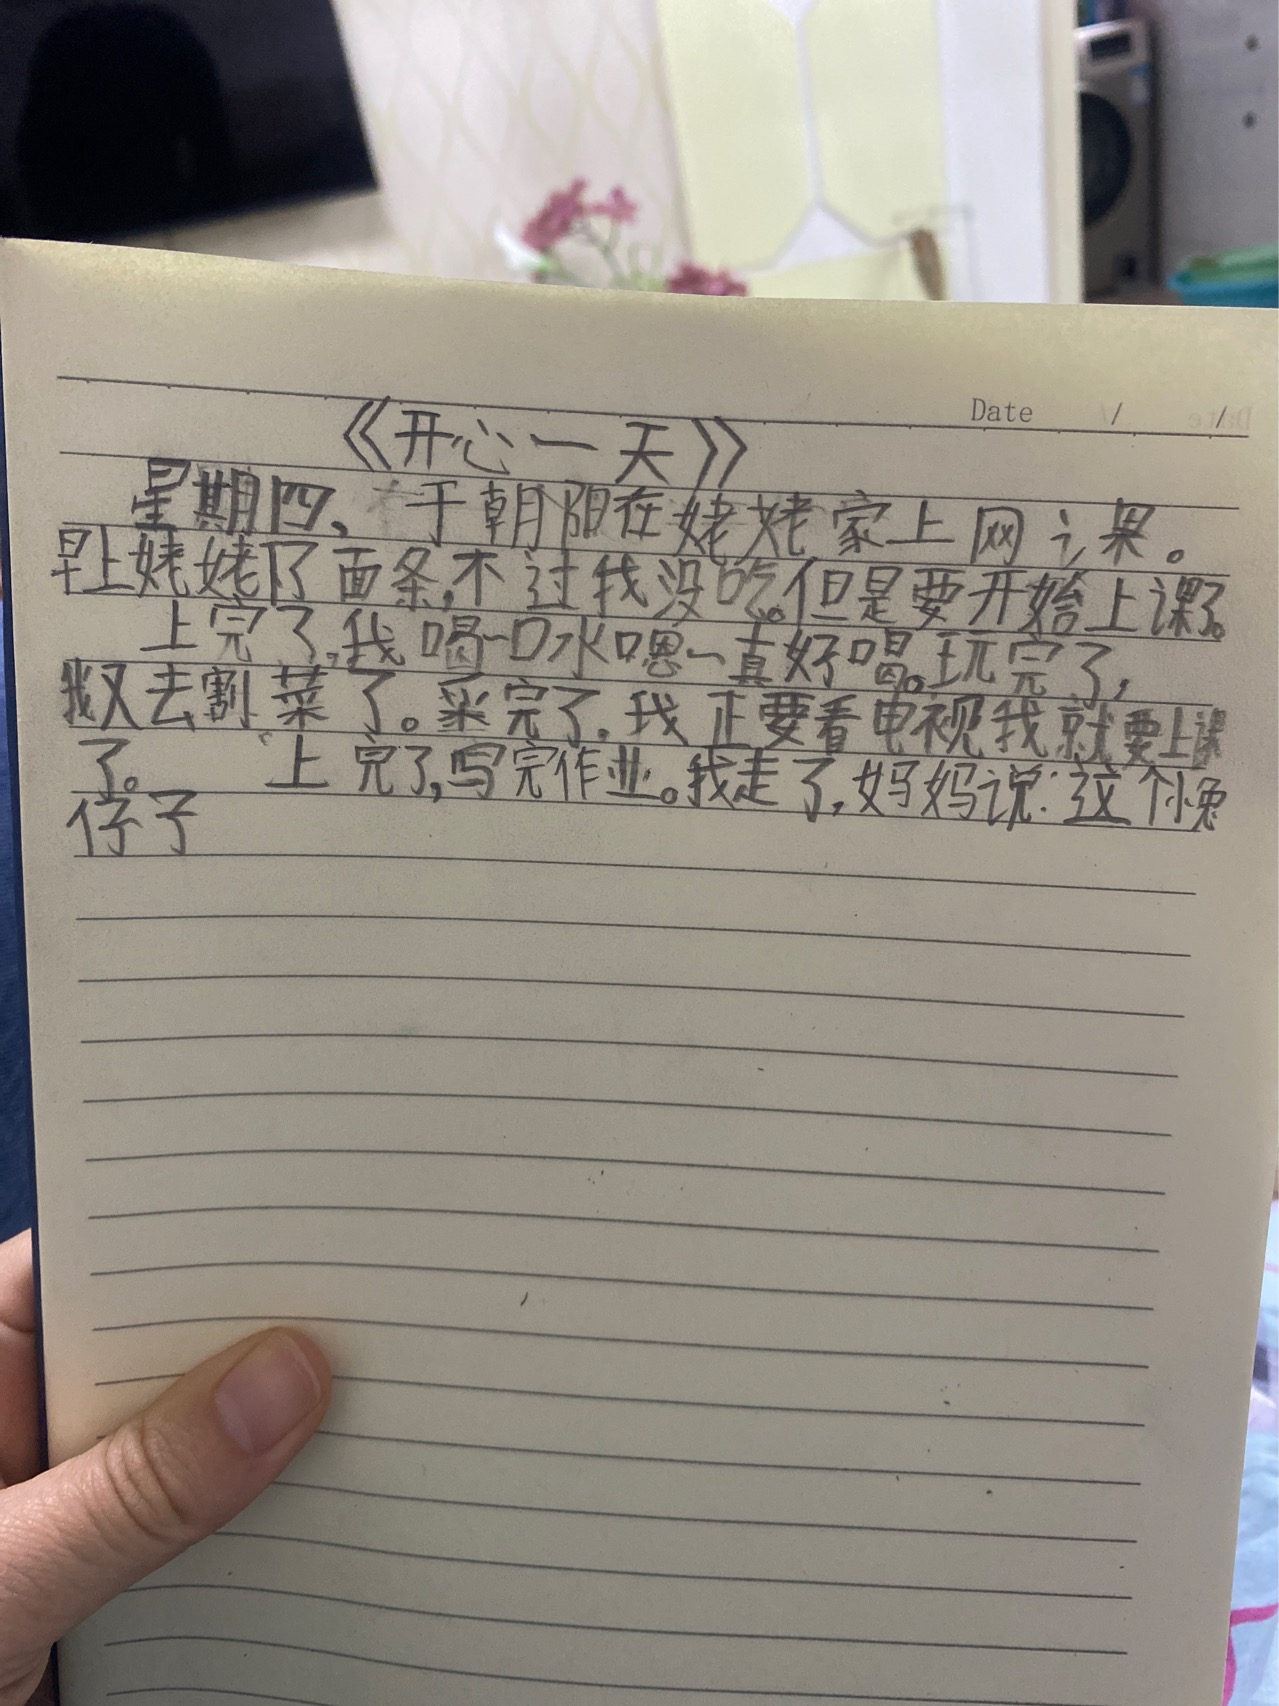 Date / /
《开心一天》
星期四、于朝阳在姥姥家上网课。
早上姥姥下了面条,不过我没吃。但是要开始上课了。
上完了,我喝一口水嗯~真好喝。玩完了,
我又去割菜了。采完了.我正要看电视我就要上课
了。 上完了,写完作业。我走了,妈妈说:这个小兔
仔子